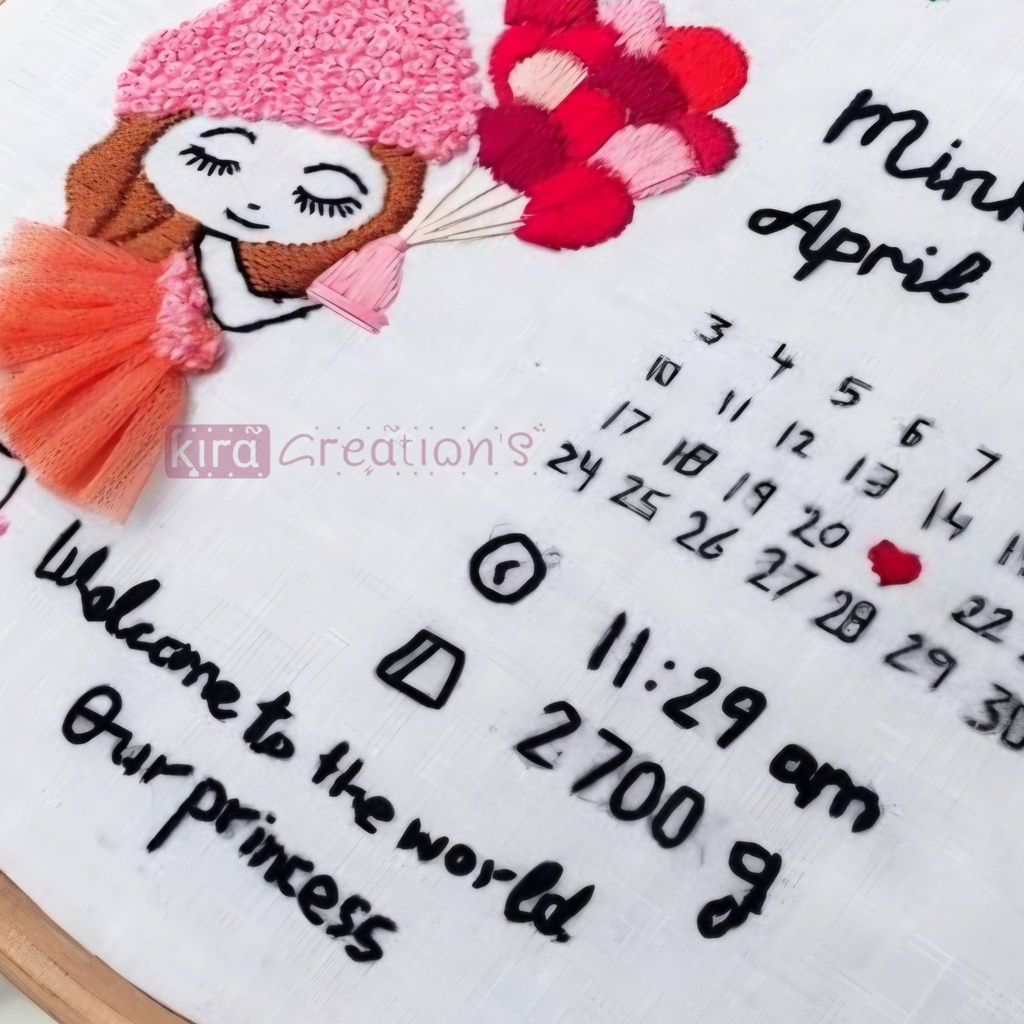 April
3 4 5 6 7
10 11 12 13 14
17 18 19 20 22
24 25 26 27 28 29 30
11:29 am
2700 g
kira Creation's
Welcome to the world
Our princess